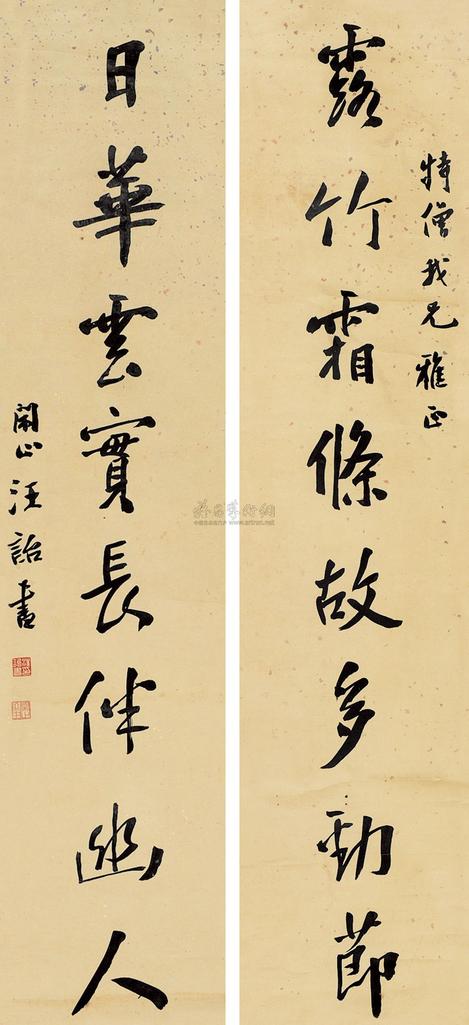 特僧我兄雅正
露竹霜條故多勁節
日華雲實長伴幽人
汪詒書